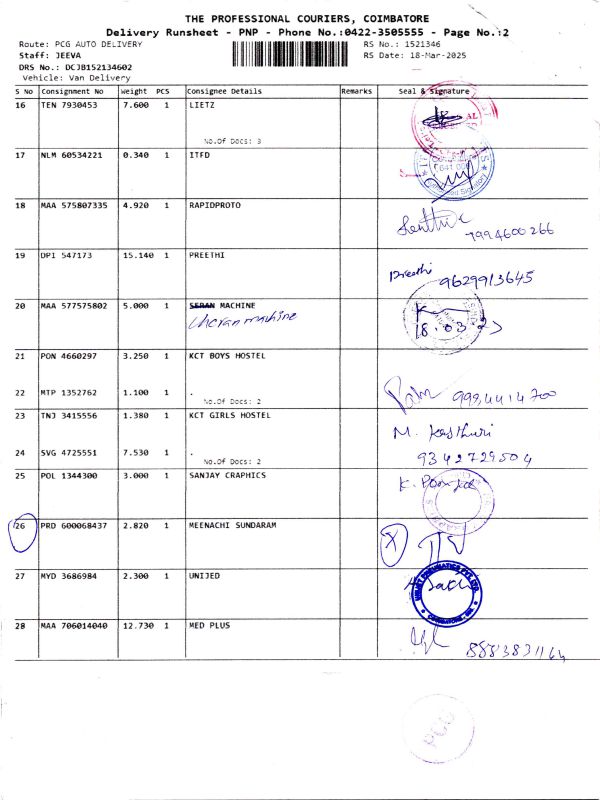 THE PROFESSIONAL COURIERS, COIMBATORE
Delivery Runsheet - PNP - Phone No.:0422-3505555 - Page No.:2
Route: PCG AUTO DELIVERY RS No.: 1521346
Staff: JEEVA RS Date: 18-Mar-2025
DRS No.: DCJB152134602
Vehicle: Van Delivery
S No Consignment No Weight PCS Consignee Details Remarks Seal & Signature
16 TEN 7930453 7.600 1 LIETZ
No.Of Docs: 3
17 NLM 60534221 0.340 1 ITFD
18 MAA 575807335 4.920 1 RAPIDPROTO
7994600266
19 DPI 547173 15.140 1 PREETHI
Preethi 9629913645
20 MAA 577575802 5.000 1 SERAN MACHINE
Cheran machine
18.03.25
21 PON 4660297 3.250 1 KCT BOYS HOSTEL
22 MTP 1352762 1.100 1 .
No.Of Docs: 2
9994414700
23 TNJ 3415556 1.380 1 KCT GIRLS HOSTEL
M. Kasthuri
24 SVG 4725551 7.530 1 .
9342729504
No.Of Docs: 2
25 POL 1344300 3.000 1 SANJAY CRAPHICS
26 PRD 600068437 2.820 1 MEENACHI SUNDARAM
X
27 MYD 3686984 2.300 1 UNIJED
28 MAA 706014040 12.730 1 MED PLUS
PCG